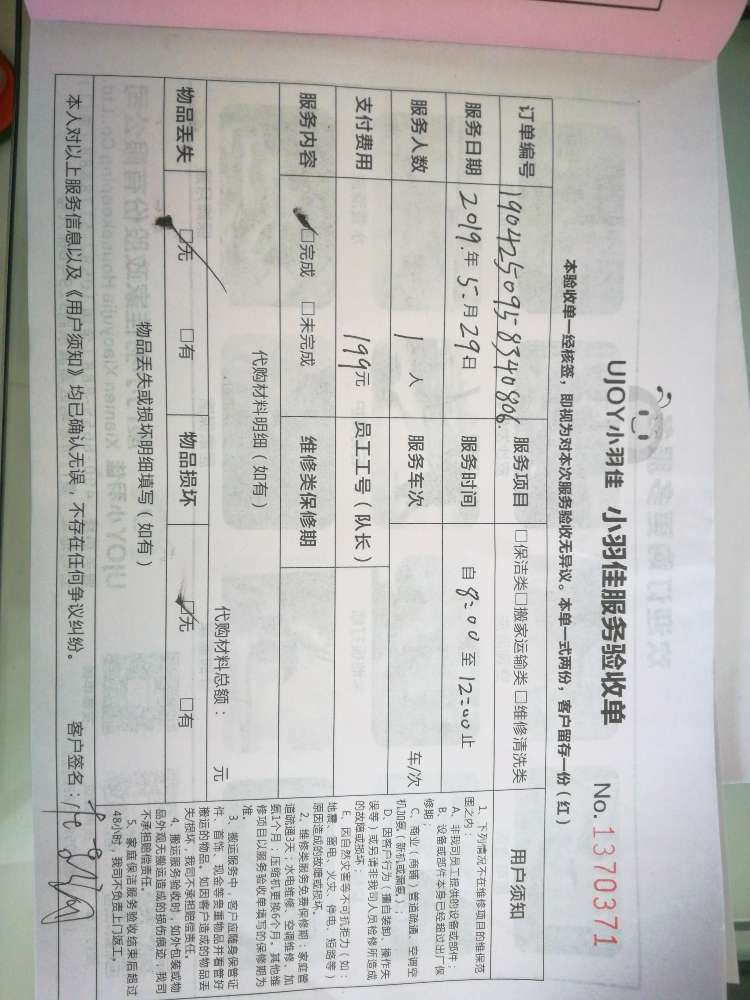 UJOY小羽佳 小羽佳服务验收单 No.1370371
本验收单一经核签，即视为对本次服务验收无异议。本单一式两份，客户留存一份（红）
订单编号 1904250958340806. 服务项目 □保洁类□搬家运输类□维修清洗类
服务日期 2019.年5.月29日 服务时间 自8:00至12:00止
服务人数 1人 服务车次 车/次
支付费用 199元 员工工号（队长）
服务内容 □完成 □未完成 维修类保修期
代购材料明细（如有） 代购材料总额： 元
物品丢失 □无 □有 物品损坏 □无 □有
物品丢失或损坏明细填写（如有）
本人对以上服务信息以及《用户须知》均已确认无误，不存在任何争议纠纷。 客户签名：
用户须知
1、下列情况不在维修项目的维保范
围之内：
A、非我司员工提供的设备或部件；
B、设备或部件本身已经超过出厂保
修期；
C、商业（商铺）管道疏通、空调空
机加氨（新机或漏氨）；
D、因客户行为（擅自装卸、操作失
误等）或另请非我司人员检修所造成
的故障或损坏；
E、因自然灾害等不可抗拒力（如：
地震、雷电、火灾、停电、短路等）
原因造成的故障或损坏。
2、维修类服务免费保修期：家庭管
道疏通3天；水电维修、空调维修、加
氨1个月；压缩机更换6个月。其他维
修项目以服务验收单填写的保修期为
准。
3、搬运服务中，客户应随身保管证
件、首饰、现金等贵重物品并看管好
搬运的物品。如因客户造成的物品丢
失/损坏，我司不承担赔偿责任。
4、搬运服务验收时，如外包装或物
品外观无搬运造成的损伤痕迹，我司
不承担赔偿责任。
5、家庭保洁服务验收结束后超过
48小时，我司不负责上门返工。